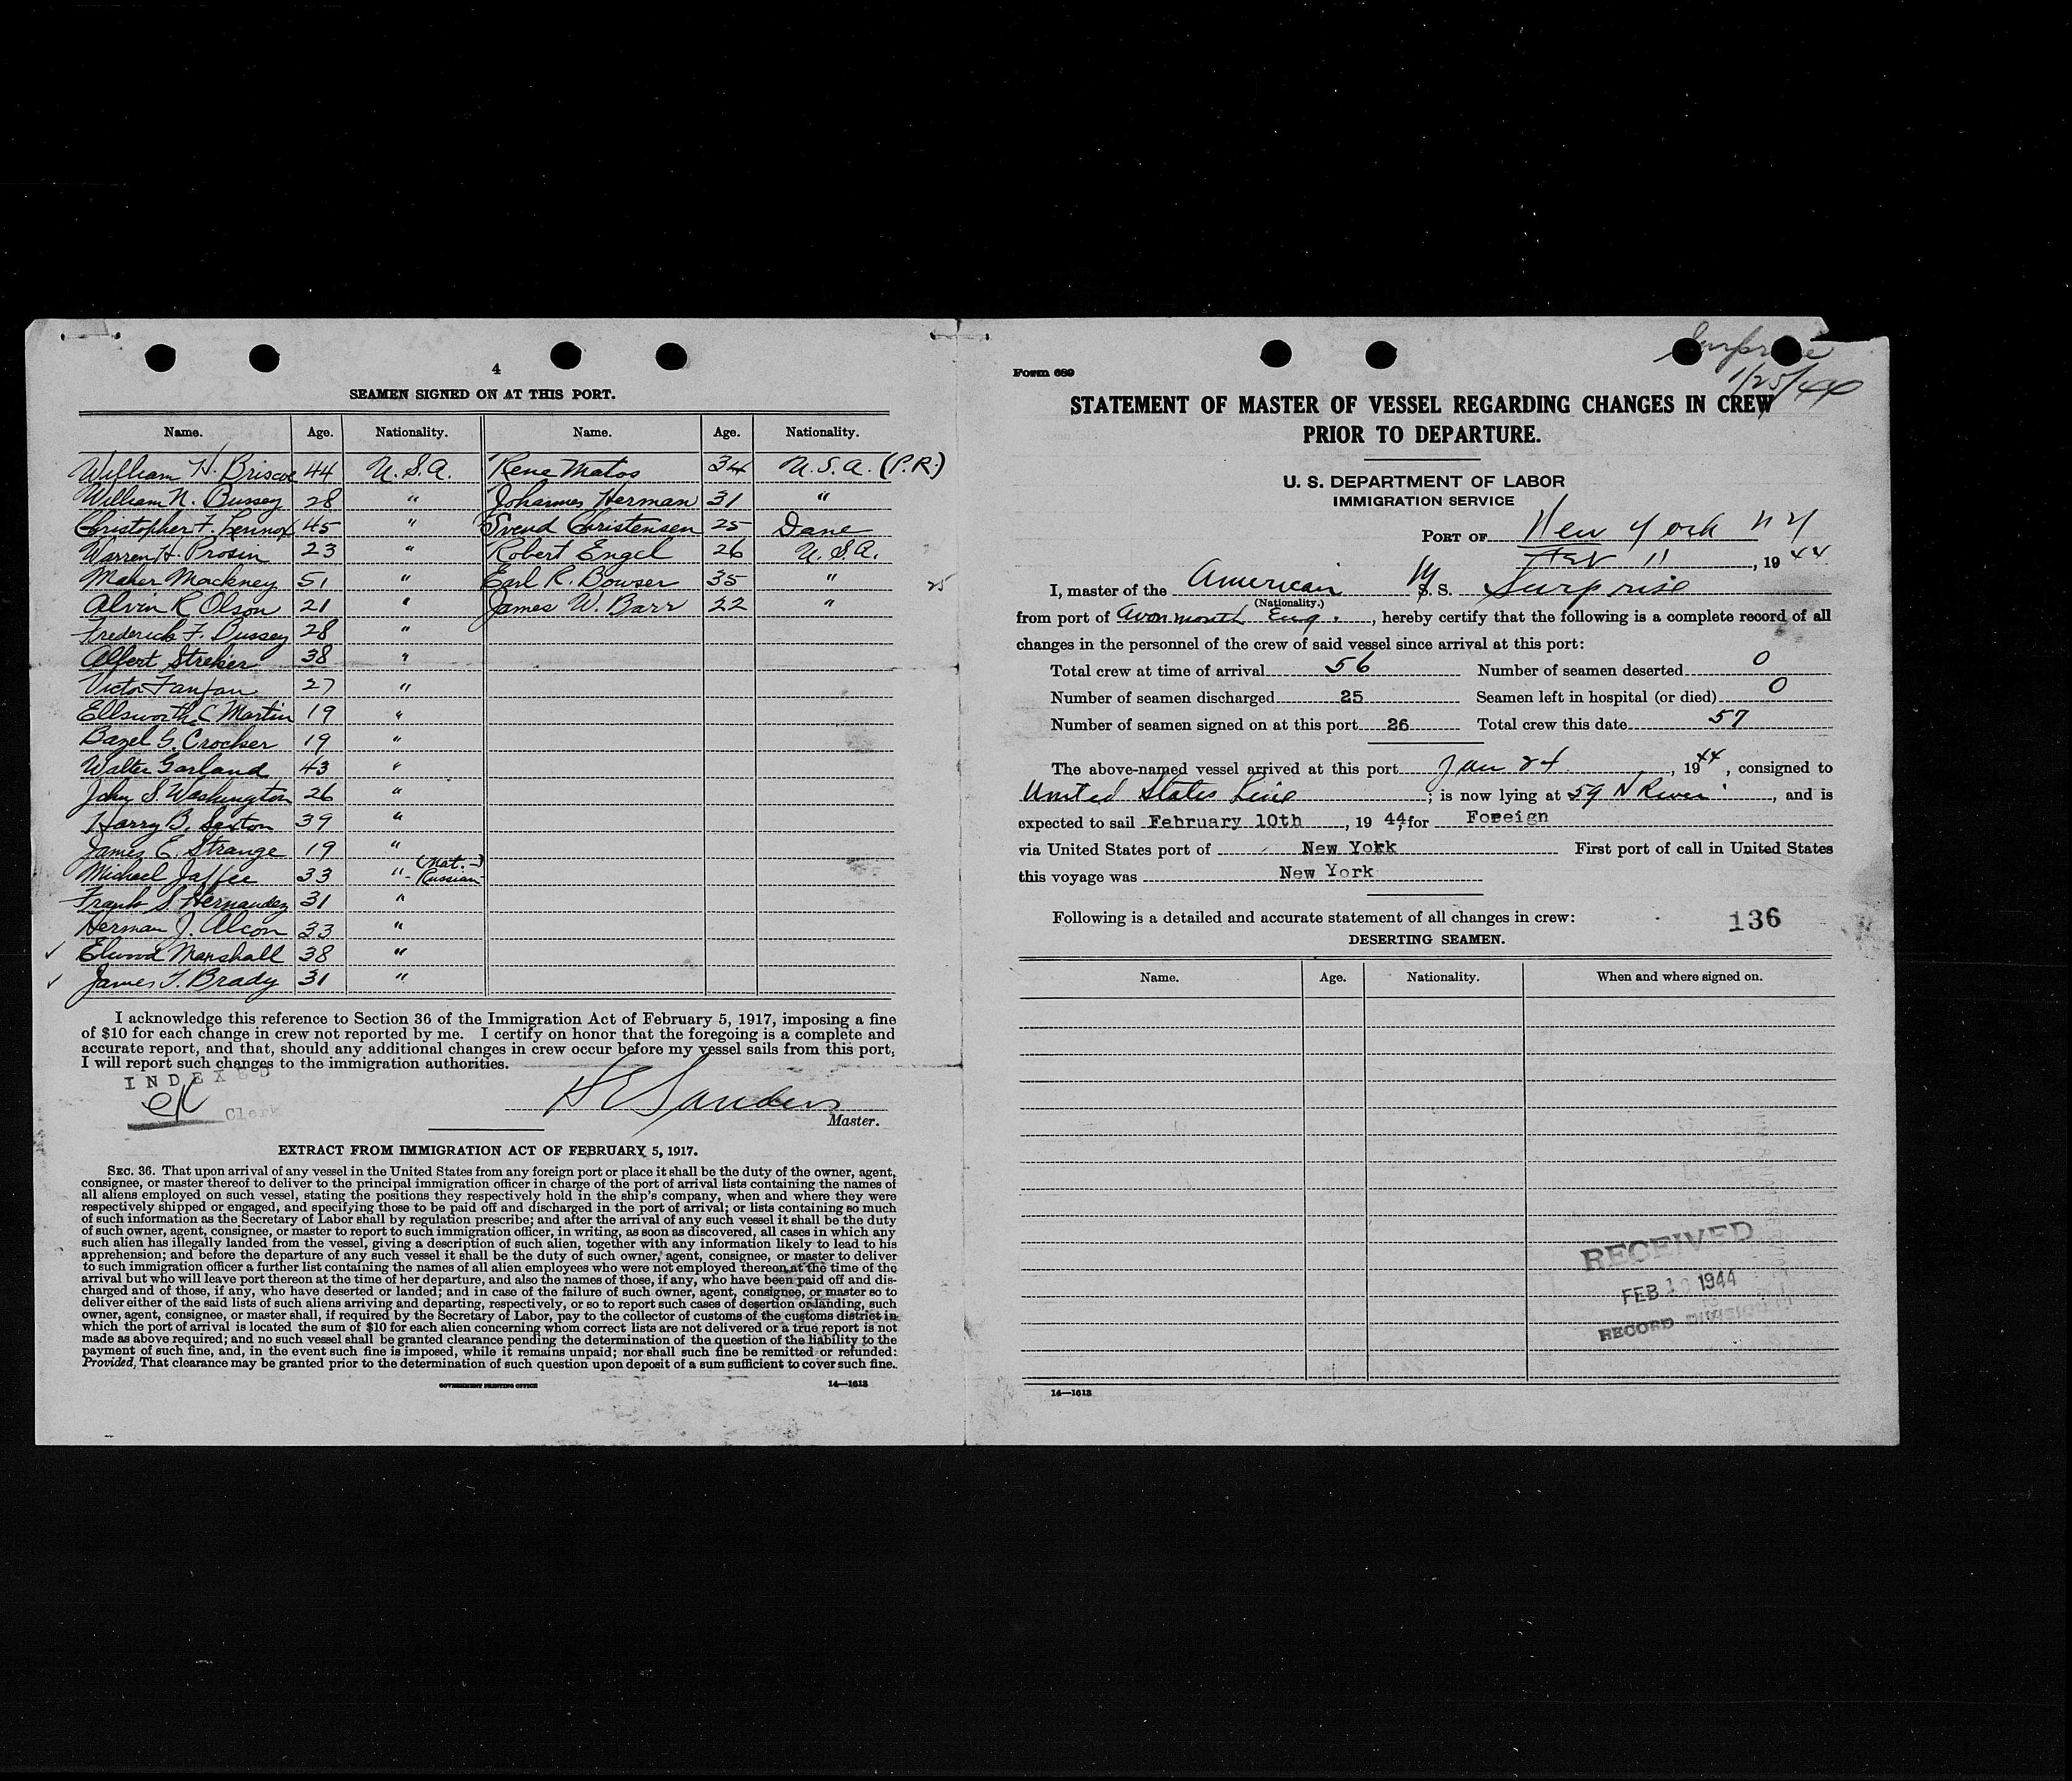 4
SEAMEN SIGNED ON AT THIS PORT.
Name. Age. Nationality. Name. Age. Nationality.
William H. Briscoe 44 U.S.A. Rene Matos 34 U.S.A. (P.R.)
William N. Bussey 28 " Johannes Herman 31 "
Christopher F. Lennox 45 " Svend Christensen 25 Dane
Warren H. Prosin 23 " Robert Engel 26 U.S.A.
Maher Mackney 51 " Earl R. Bowser 35 " 25
Alvin R Olson 21 " James W. Barr 22 "
Frederick F. Bussey 28 "
Alfert Streker 38 "
Victor Fanfan 27 "
Ellsworth C Martin 19 "
Bazel G. Crocker 19 "
Walter Garland 43 "
John S. Washington 26 "
Harry B. Sexton 39 "
James E. Strange 19 "
Michael Jaffee 33 " (Nat.-) Russian
Frank S. Hernandez 31 "
Herman J. Alcon 33 "
✓ Elwood Marshall 38 "
✓ James T. Brady 31 "
I acknowledge this reference to Section 36 of the Immigration Act of February 5, 1917, imposing a fine
of $10 for each change in crew not reported by me. I certify on honor that the foregoing is a complete and
accurate report, and that, should any additional changes in crew occur before my vessel sails from this port,
I will report such changes to the immigration authorities.
INDEXED
eK Clerk
H E Sanders
Master.
EXTRACT FROM IMMIGRATION ACT OF FEBRUARY 5, 1917.
SEC. 36. That upon arrival of any vessel in the United States from any foreign port or place it shall be the duty of the owner, agent,
consignee, or master thereof to deliver to the principal immigration officer in charge of the port of arrival lists containing the names of
all aliens employed on such vessel, stating the positions they respectively hold in the ship's company, when and where they were
respectively shipped or engaged, and specifying those to be paid off and discharged in the port of arrival; or lists containing so much
of such information as the Secretary of Labor shall by regulation prescribe; and after the arrival of any such vessel it shall be the duty
of such owner, agent, consignee, or master to report to such immigration officer, in writing, as soon as discovered, all cases in which any
such alien has illegally landed from the vessel, giving a description of such alien, together with any information likely to lead to his
apprehension; and before the departure of any such vessel it shall be the duty of such owner, agent, consignee, or master to deliver
to such immigration officer a further list containing the names of all alien employees who were not employed thereon at the time of the
arrival but who will leave port thereon at the time of her departure, and also the names of those, if any, who have been paid off and dis-
charged and of those, if any, who have deserted or landed; and in case of the failure of such owner, agent, consignee, or master so to
deliver either of the said lists of such aliens arriving and departing, respectively, or so to report such cases of desertion or landing, such
owner, agent, consignee, or master shall, if required by the Secretary of Labor, pay to the collector of customs of the customs district in
which the port of arrival is located the sum of $10 for each alien concerning whom correct lists are not delivered or a true report is not
made as above required; and no such vessel shall be granted clearance pending the determination of the question of the liability to the
payment of such fine, and, in the event such fine is imposed, while it remains unpaid; nor shall such fine be remitted or refunded:
Provided, That clearance may be granted prior to the determination of such question upon deposit of a sum sufficient to cover such fine.
GOVERNMENT PRINTING OFFICE 14—1613
Surprise
1/25/44
Form 689
STATEMENT OF MASTER OF VESSEL REGARDING CHANGES IN CREW
PRIOR TO DEPARTURE.
U. S. DEPARTMENT OF LABOR
IMMIGRATION SERVICE
PORT OF New York NY
Feb 11, 1944
I, master of the American M S. S. Surprise
(Nationality.)
from port of Avonmouth Eng., hereby certify that the following is a complete record of all
changes in the personnel of the crew of said vessel since arrival at this port:
Total crew at time of arrival 56 Number of seamen deserted 0
Number of seamen discharged 25 Seamen left in hospital (or died) 0
Number of seamen signed on at this port 26 Total crew this date 57
The above-named vessel arrived at this port Jan 24, 1944, consigned to
United States Line; is now lying at 59 N River, and is
expected to sail February 10th, 1944, for Foreign
via United States port of New York First port of call in United States
this voyage was New York
Following is a detailed and accurate statement of all changes in crew: 136
DESERTING SEAMEN.
Name. Age. Nationality. When and where signed on.
RECEIVED
FEB 1 1944
RECORD DIVISION
14—1613